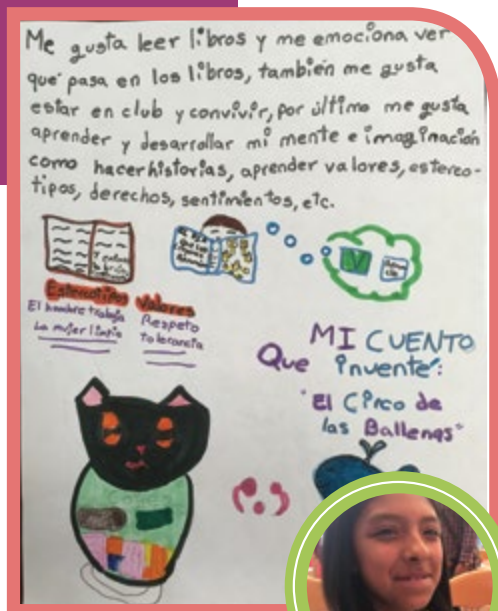 Me gusta leer libros y me emociona ver
que pasa en los libros, también me gusta
estar en club y convivir, por último me gusta
aprender y desarrollar mi mente e imaginación
como hacer historias, aprender valores, estereo-
tipos, derechos, sentimientos, etc.
Estereotipos
El hombre trabaja
La mujer limpia
Valores
Respeto
Tolerancia
MI CUENTO
Que inventé:
"El Circo de
las Ballenas"